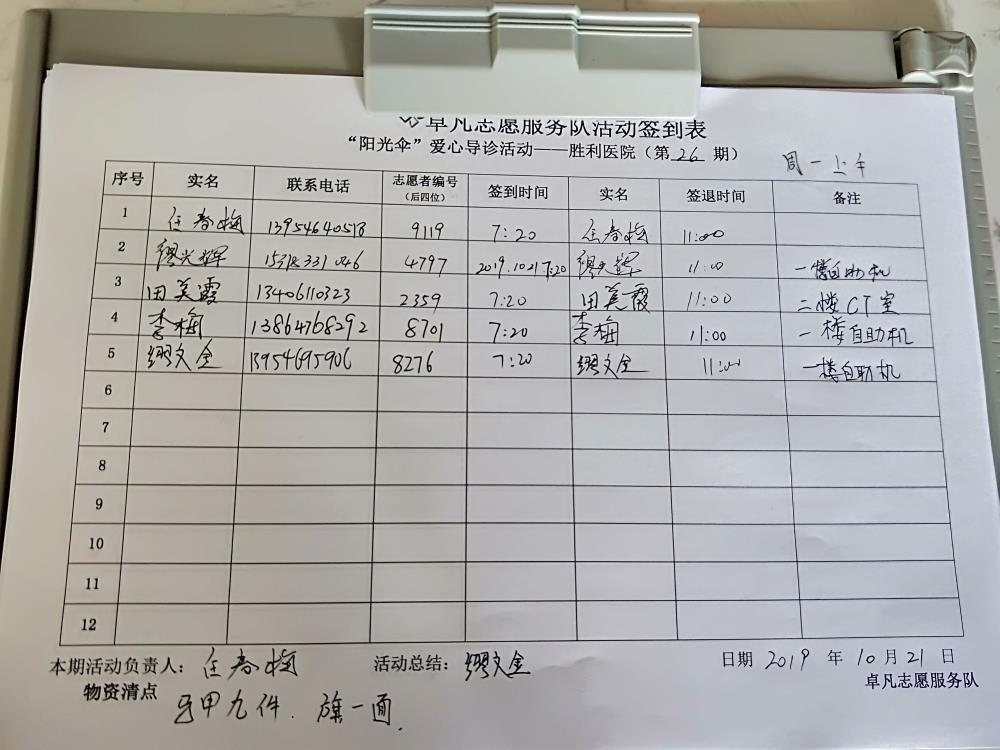 卓凡志愿服务队活动签到表
“阳光伞”爱心导诊活动——胜利医院（第 26 期）
周一上午
序号 实名 联系电话 志愿者编号（后四位） 签到时间 实名 签退时间 备注
1 任春梅 13954640518 9119 7:20 任春梅 11:00
2 缪光辉 4797 2019.10.21 7:20 缪光辉 11:00 一楼自助机
3 田美霞 13406110323 2359 7:20 田美霞 11:00 二楼CT室
4 李梅 13864768292 8701 7:20 李梅 11:00 一楼自助机
5 缪文金 13954695906 8276 7:20 缪文金 11:00 一楼自助机
6
7
8
9
10
11
12
本期活动负责人：任春梅 活动总结：缪文金 日期 2019 年 10 月 21 日
卓凡志愿服务队
物资清点 马甲九件．旗一面．